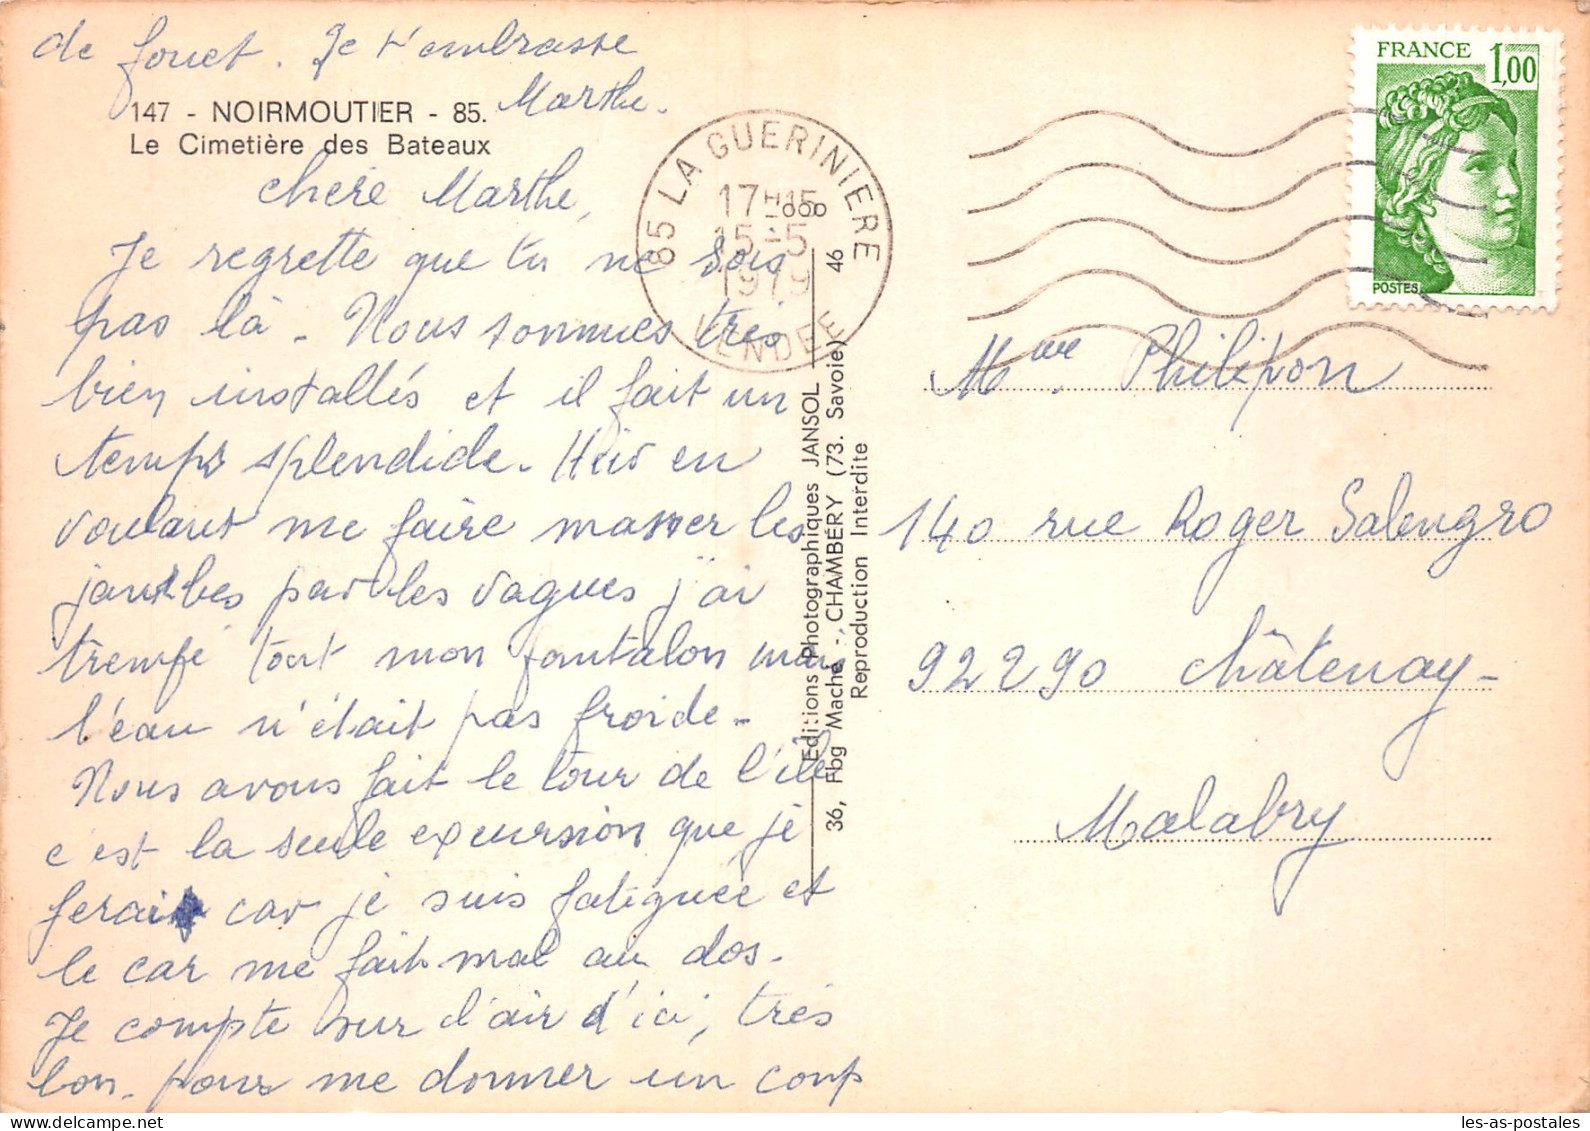 de fouet. Je t'embrasse
Marthe.
147 - NOIRMOUTIER - 85.
Le Cimetière des Bateaux
chère Marthe,
Je regrette que tu ne sois
pas là. Nous sommes très
bien installés et il fait un
temps splendide. Hier en
voulant me faire masser les
jambes par les vagues j'ai
trempé tout mon pantalon mais
l'eau n'était pas froide.
Nous avons fait le tour de l'île
c'est la seule excursion que je
ferai car je suis fatiguée et
le car me fait mal au dos.
Je compte sur l'air d'ici, très
bon. pour me donner un coup
85 LA GUERINIERE
17H15
15-5
1979
VENDEE
FRANCE 1,00
POSTES
Editions Photographiques JANSOL 46
36, Fbg Mache - CHAMBERY (73. Savoie)
Reproduction Interdite
Mme Philipon
140 rue Roger Salengro
92290 Châtenay-
Malabry
les-as-postales